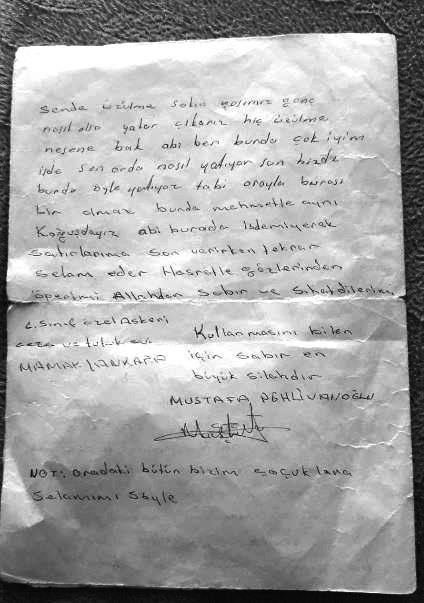 Sende üzülme sakın yaşımız genç
nasıl olsa yatar çıkarız hiç üzülme
neşene bak abi ben burda çok iyim
işde sen orda nasıl yatıyor san bizde
burda öyle yatıyoz tabi orayla burası
bir olmaz burda mehmetle aynı
Koğuşdayız abi burada istemiyerek
Satırlarıma son verirken tekrar
Selam eder Hasretle gözlerinden
öperim Allahdan Sabır ve Sıhat dilerken
1. Sınıf özel Askeri
ceza ve tutuk evi
MAMAK / ANKARA
Kullanmasını bilen
için sabır en
büyük silahdır
MUSTAFA PEHLİVANOĞLU
NOT: oradaki bütün bizim çocuklara
Selamımı Söyle